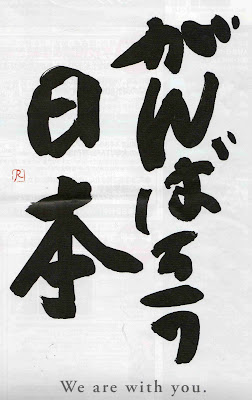 がんばろう
日本
We are with you.